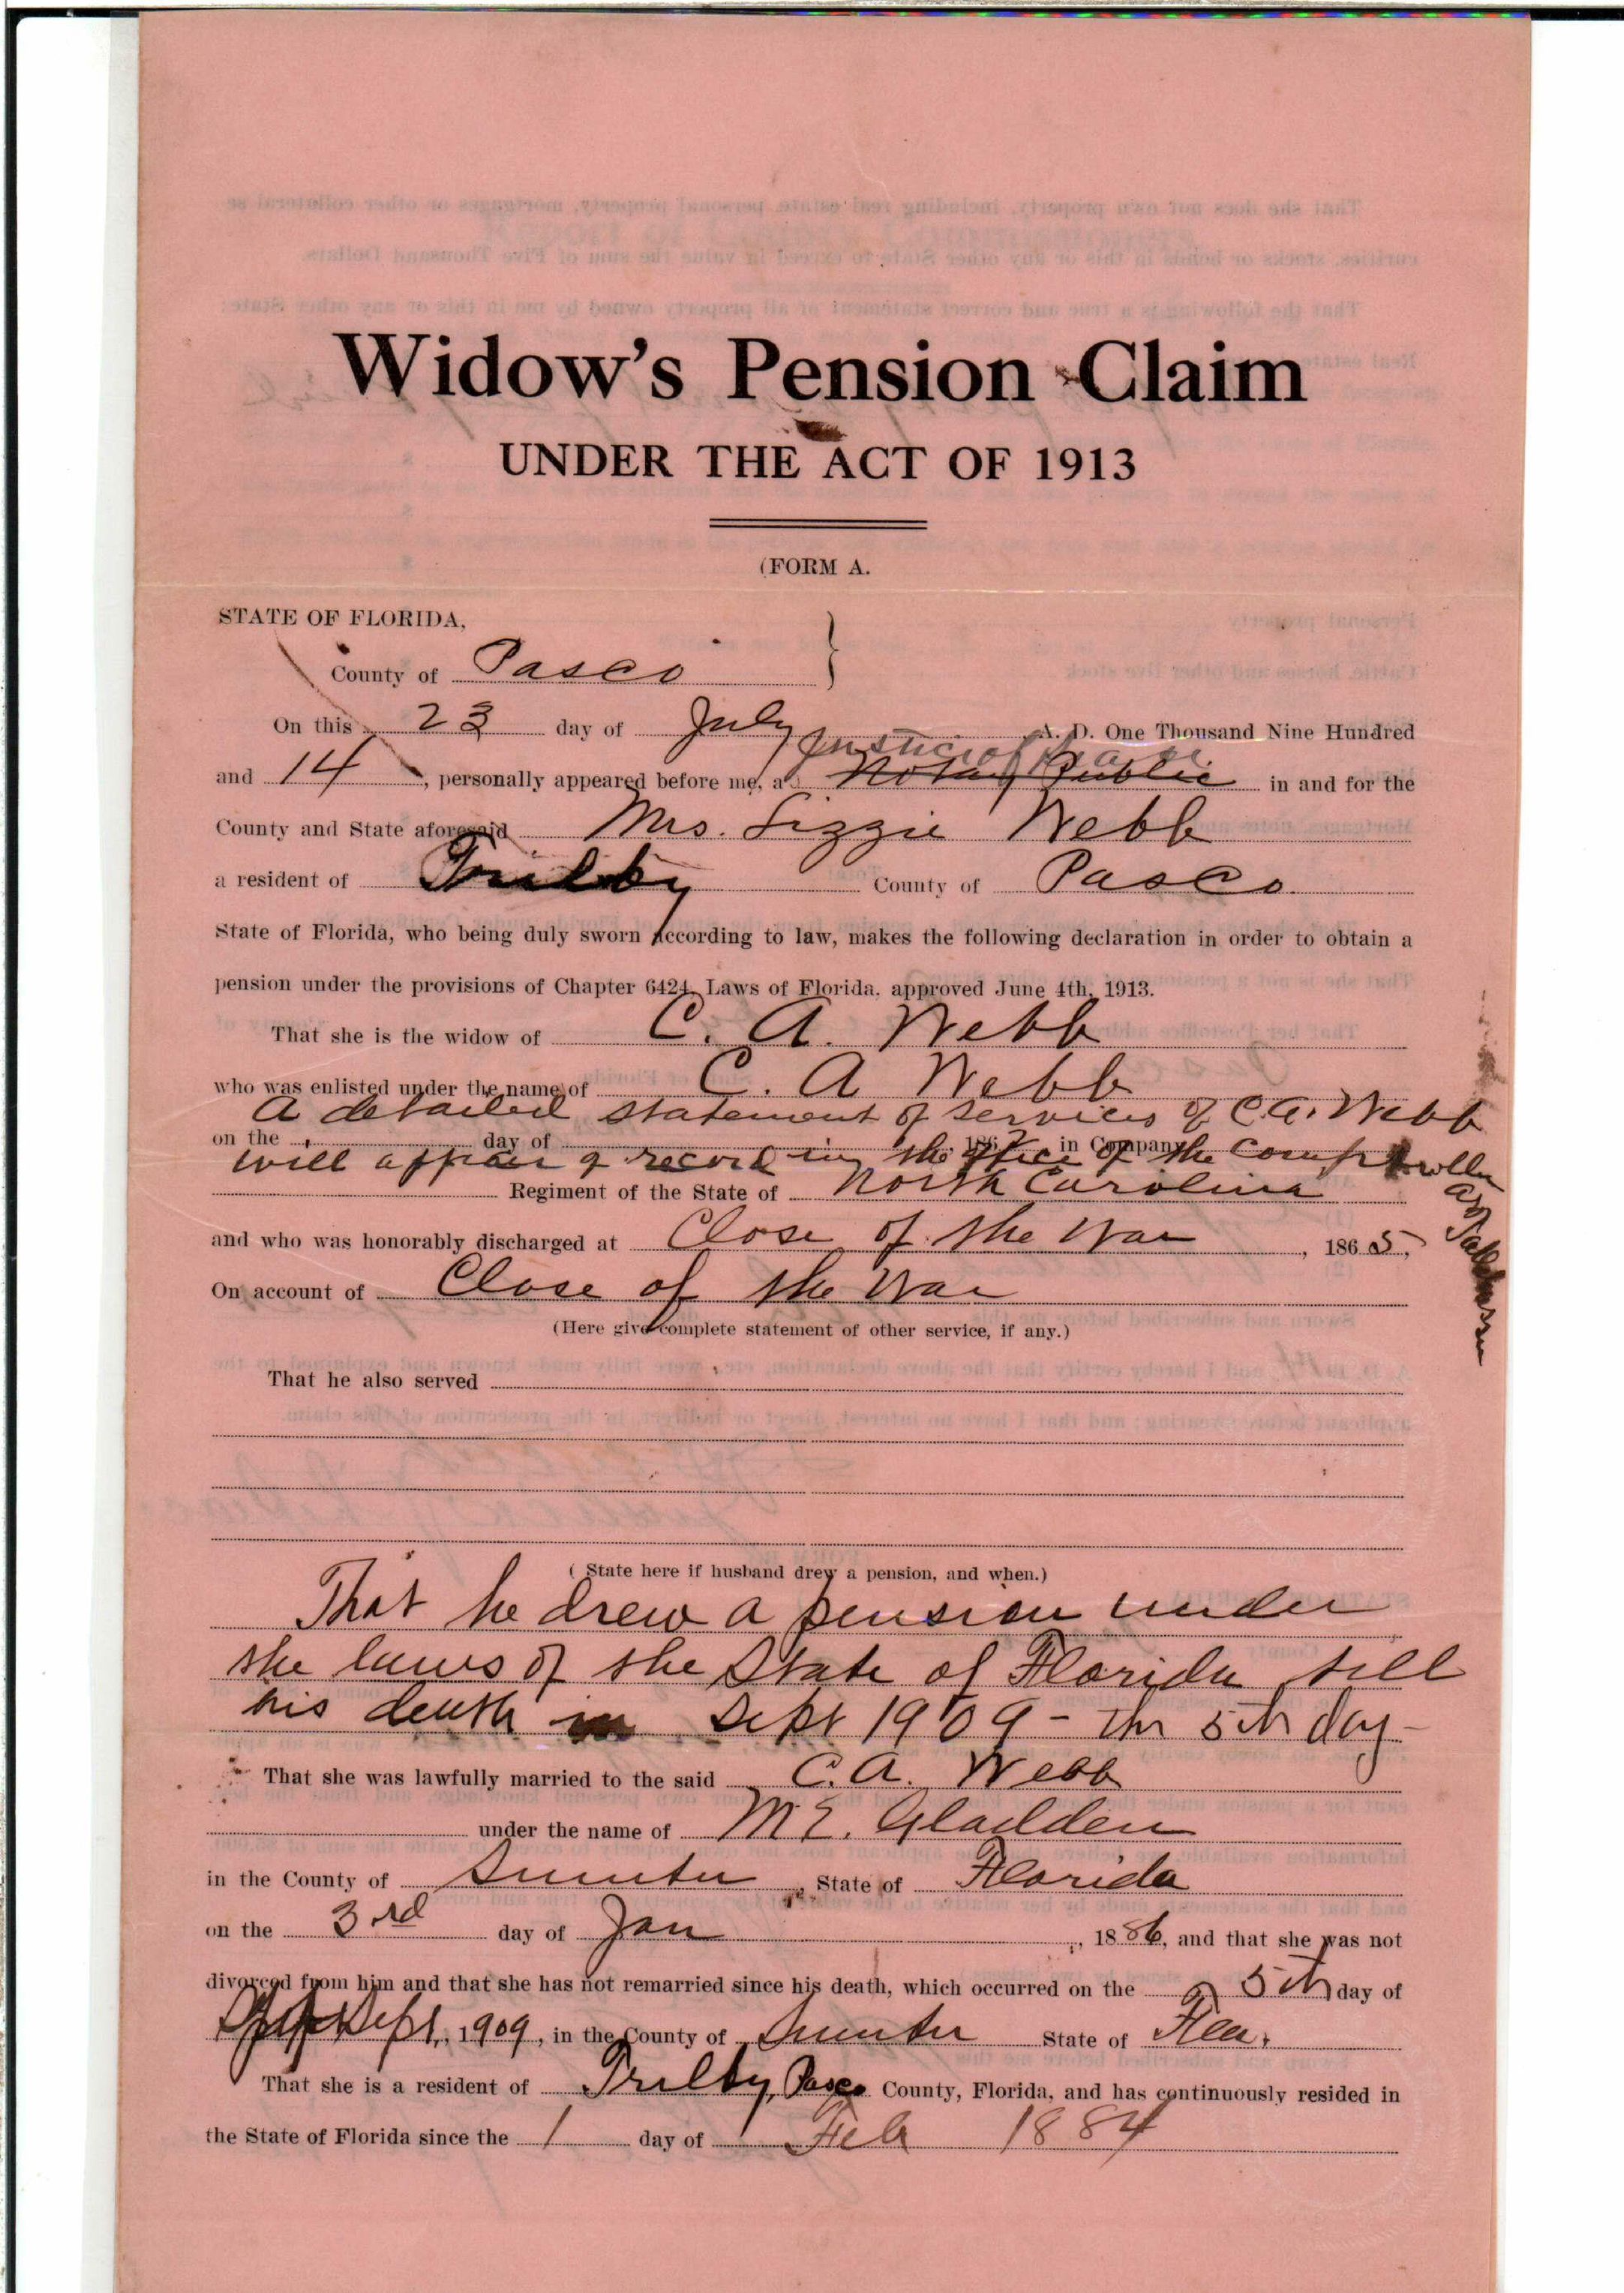 Widow's Pension Claim
UNDER THE ACT OF 1913
(FORM A.
STATE OF FLORIDA,
County of Pasco }
On this 23 day of July A. D. One Thousand Nine Hundred
Justice of Peace
and 14, personally appeared before me, a Notary Public in and for the
County and State aforesaid Mrs. Lizzie Webb
a resident of Trilby County of Pasco
State of Florida, who being duly sworn according to law, makes the following declaration in order to obtain a
pension under the provisions of Chapter 6424, Laws of Florida, approved June 4th, 1913.
That she is the widow of C. A. Webb
who was enlisted under the name of C. A Webb
A detailed statement of services of C. A. Webb
on the day of 186 in Company
will appear of record in the office of the Comptroller
at Tallahassee
Regiment of the State of North Carolina
and who was honorably discharged at Close of the War, 1865,
On account of Close of the War
(Here give complete statement of other service, if any.)
That he also served
( State here if husband drew a pension, and when.)
That he drew a pension under
the laws of the State of Florida till
his death in Sept 1909 - the 5th day -
That she was lawfully married to the said C. A. Webb
under the name of M E. Gladden
in the County of Sumter, State of Florida
on the 3rd day of Jan, 1886, and that she was not
divorced from him and that she has not remarried since his death, which occurred on the 5th day of
Sept, 1909, in the County of Sumter State of Fla.
That she is a resident of Trilby, Pasco County, Florida, and has continuously resided in
the State of Florida since the 1 day of Feb 1884